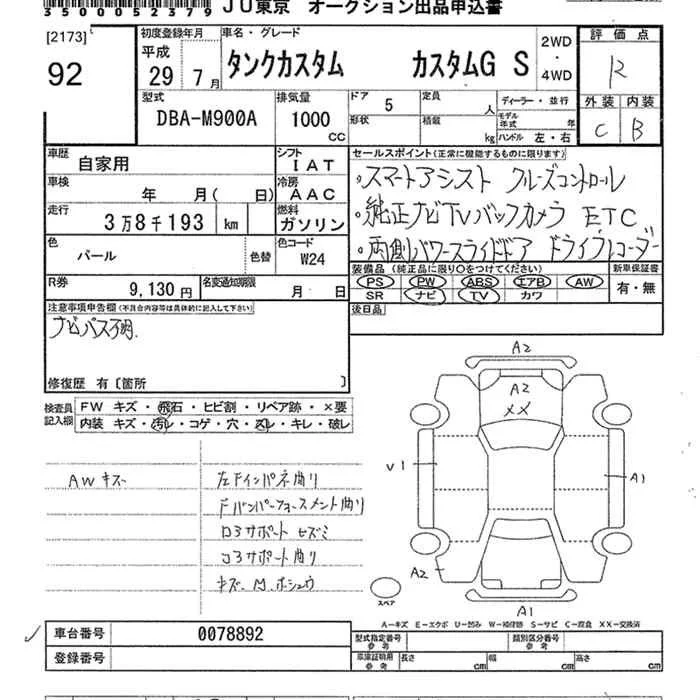 3500052379 JU東京 オークション出品申込書
[2173]
92
初度登録年月
平成
29年 7月
車名・グレード
タンクカスタム カスタムG S
2WD
・
4WD
評価点
R
外装 内装
C B
型式
DBA-M900A
排気量
1000
CC
ドア 5
定員 人
形状
積載 kg
ディーラー・並行
モデル年式 年
ハンドル 左・右
車歴
自家用
シフト
IAT
車検
年 月( 日)
冷房
AAC
走行
3万8千193 km
燃料
ガソリン
色
パール
色替
色コード
W24
R券
9,130円
名変通知期限
月 日
セールスポイント(正常に機能するものに限ります)
・スマートアシスト クルーズコントロール
・純正ナビTVバックカメラ ETC
・両側パワースライドドア ドライブレコーダー
装備品(純正品に限り○をつけてください)
PS PW ABS エアB AW
SR ナビ TV カワ
新車保証書
有・無
後日品
注意事項申告欄(不具合内容等は具体的に記入して下さい)
ナビパス不明
修復歴 有〔箇所 〕
検査員記入欄
FW キズ・飛石・ヒビ割・リペア跡・×要
内装 キズ・汚レ・コゲ・穴・スレ・キレ・破レ
AWキズ
左Fインパネ曲り
Fバンパーフォースメント曲り
ロアサポート ヒズミ
コアサポート曲り
キズ・凹 ホシュウ
A2
A2
XX
V1
A1
A2
A1
スペア
A－キズ E－エクボ U－凹み W－補修跡 S－サビ C－腐食 XX－交換済
車台番号 0078892
登録番号
型式指定番号
参考
類別区分番号
参考
車庫証明用
参考
長さ cm 幅 cm 高さ cm